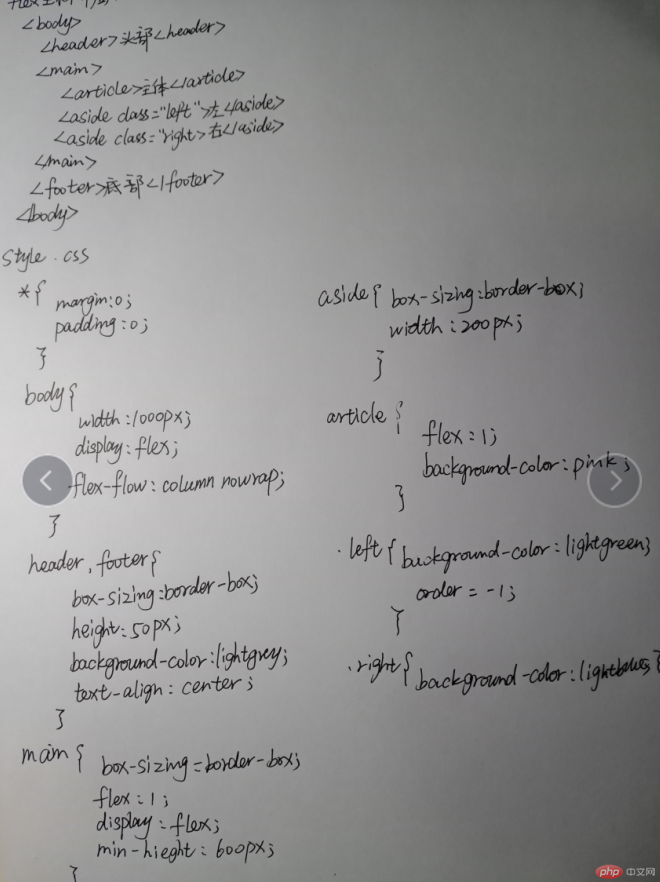 <body>
<header>头部<header>
<main>
<article>主体</article>
<aside class="left">左</aside>
<aside class="right>右</aside>
</main>
<footer>底部</footer>
<body>
style.css
*{
margin:0;
padding:0;
}
body{
width:1000px;
display:flex;
flex-flow:column nowrap;
}
header,footer{
box-sizing:border-box;
height:50px;
background-color:lightgrey;
text-align:center;
}
main{
box-sizing=border-box;
flex:1;
display:flex;
min-hieght:600px;
}
aside{ box-sizing:border-box;
width:200px;
}
article{
flex:1;
background-color:pink;
}
.left{background-color:lightgreen;
order=-1;
}
.right{background-color:
php 中文网